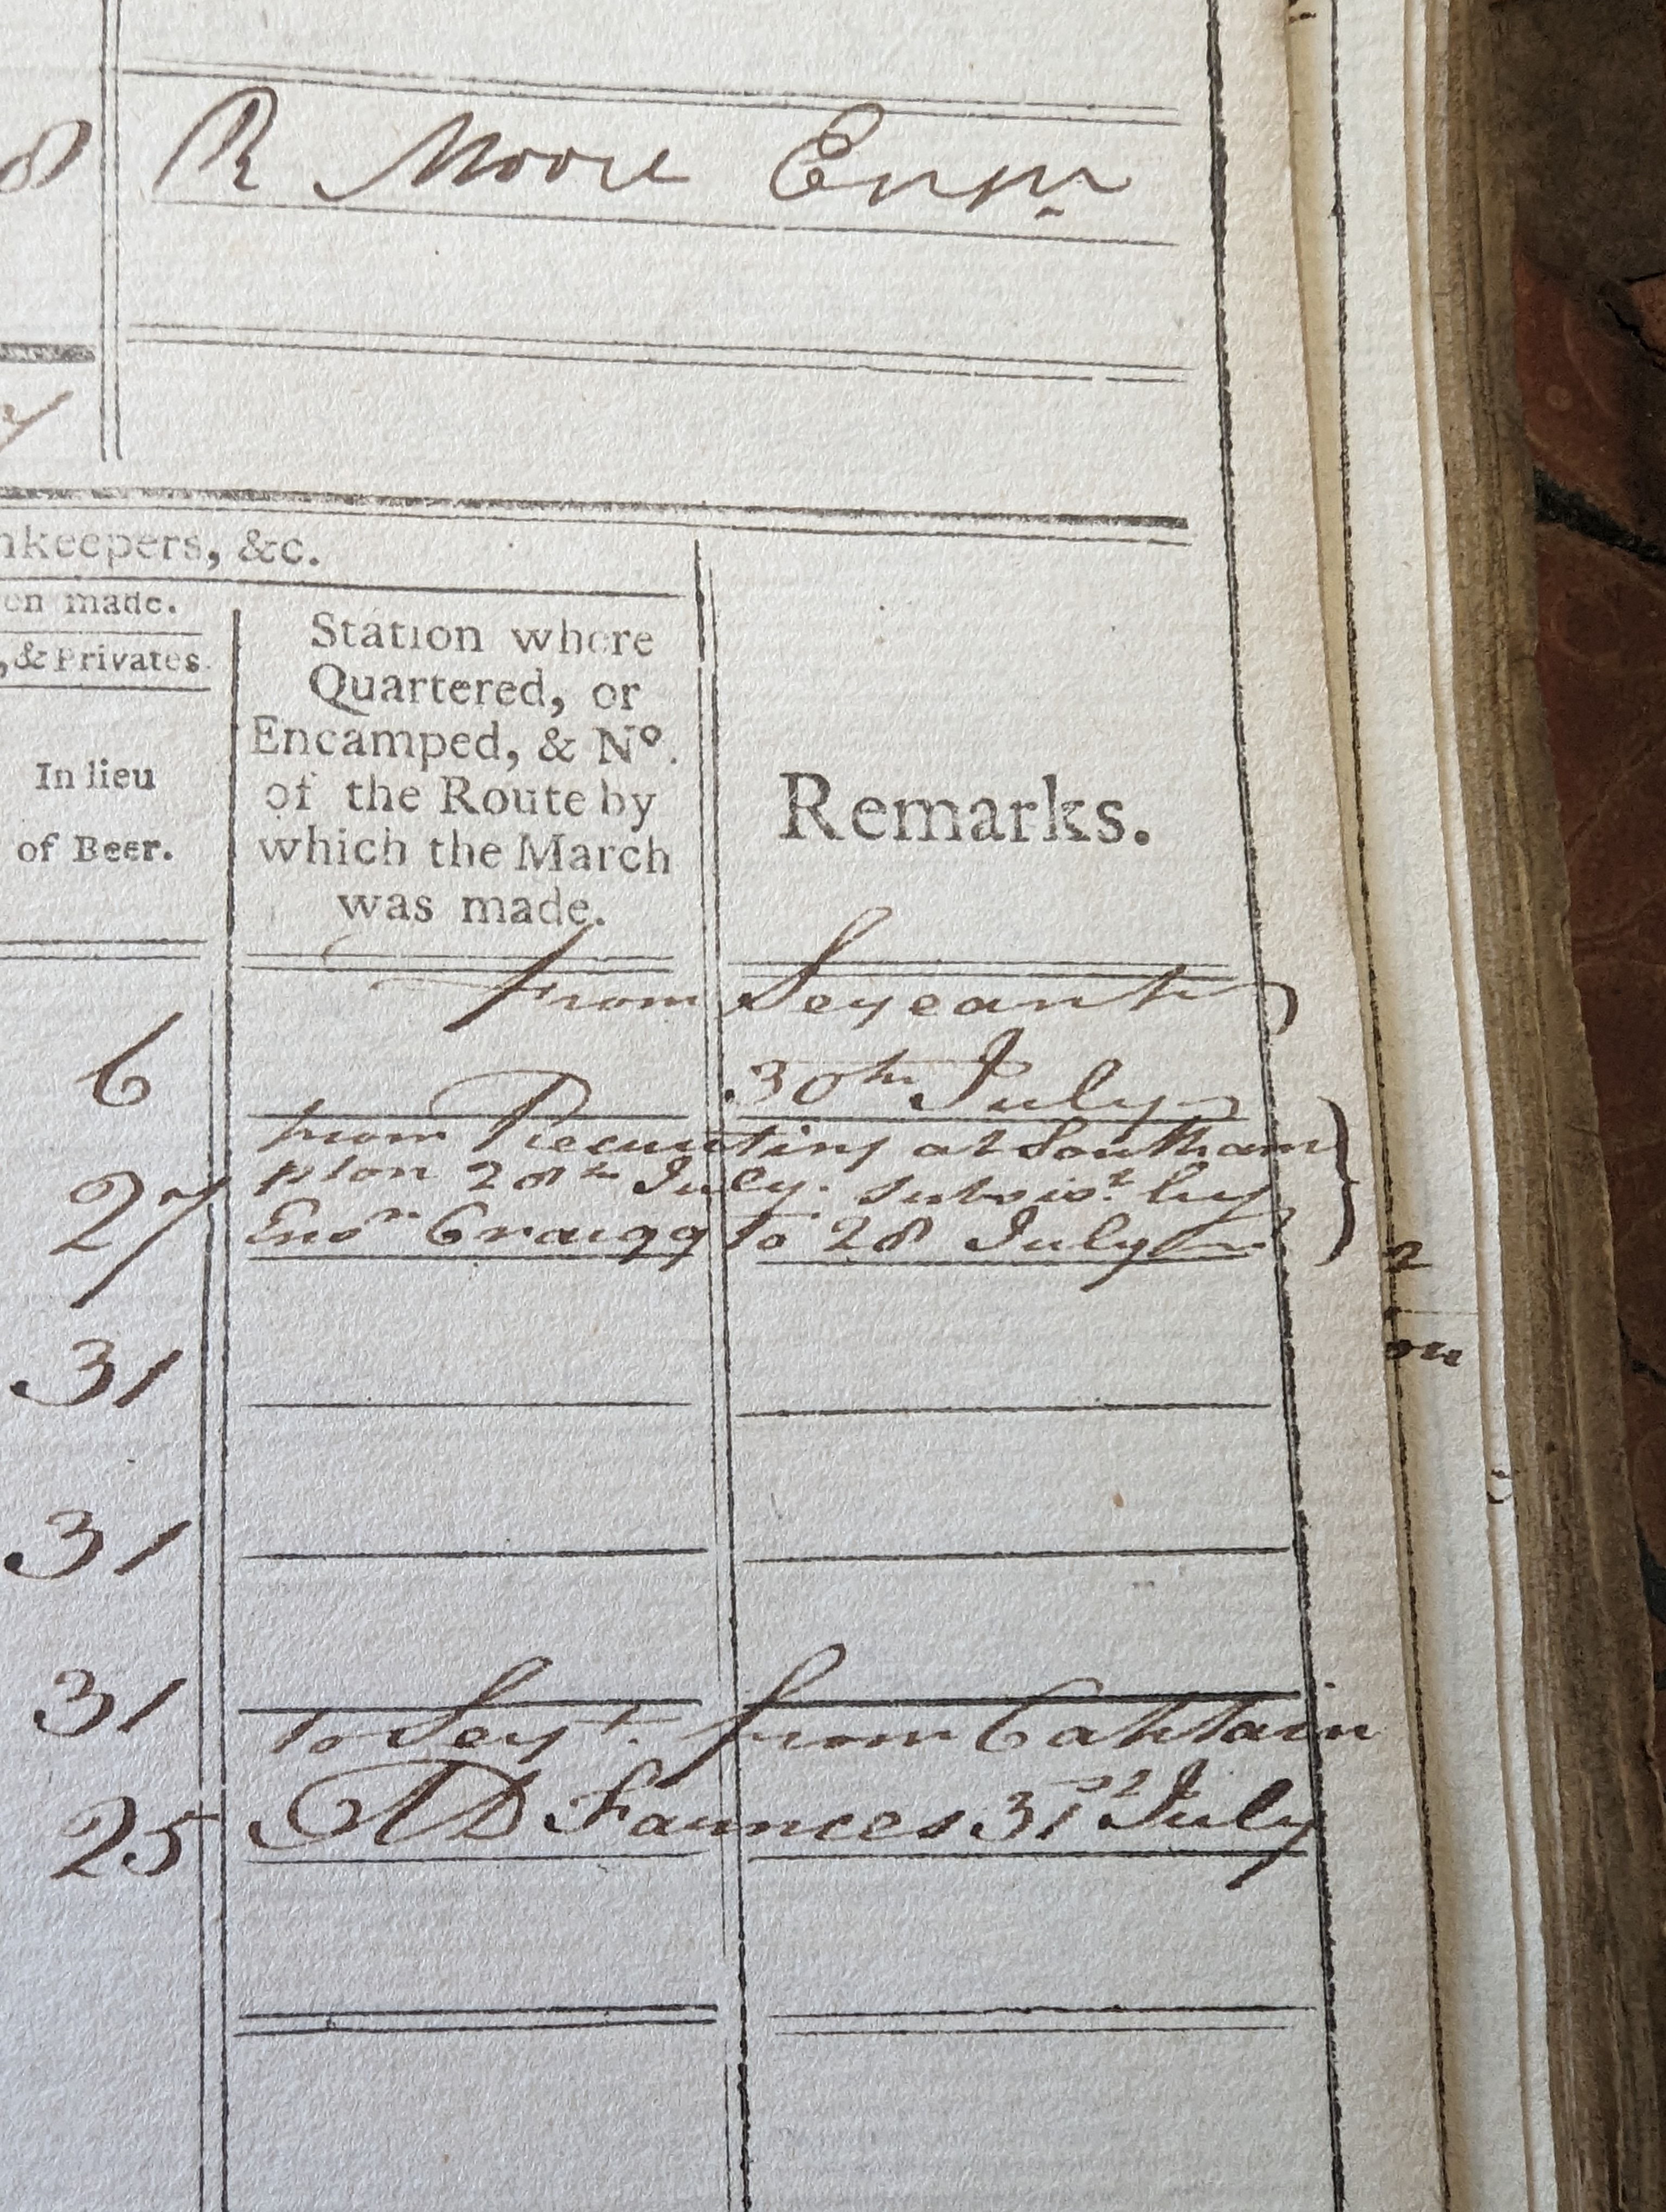 8 R Moore Ensn
nkeepers, &c.
en made.
, & Privates.
In lieu
of Beer.
Station where
Quartered, or
Encamped, & Nº.
of the Route by
which the March
was made.
Remarks.
From Serjeant
6 30th July
27 from Recruiting at Southam
pton 28th July. subsist. by
Ensn Craigg to 28 July
31
31
31
25 to Serjt. from Captain
A D Faunces 31st July